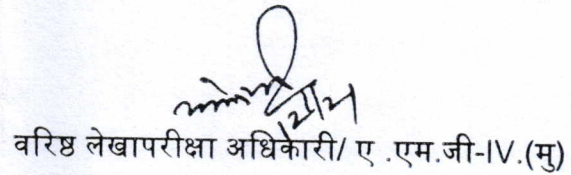 वरिष्ठ लेखापरीक्षा अधिकारी/ ए .एम.जी-IV.(मु)